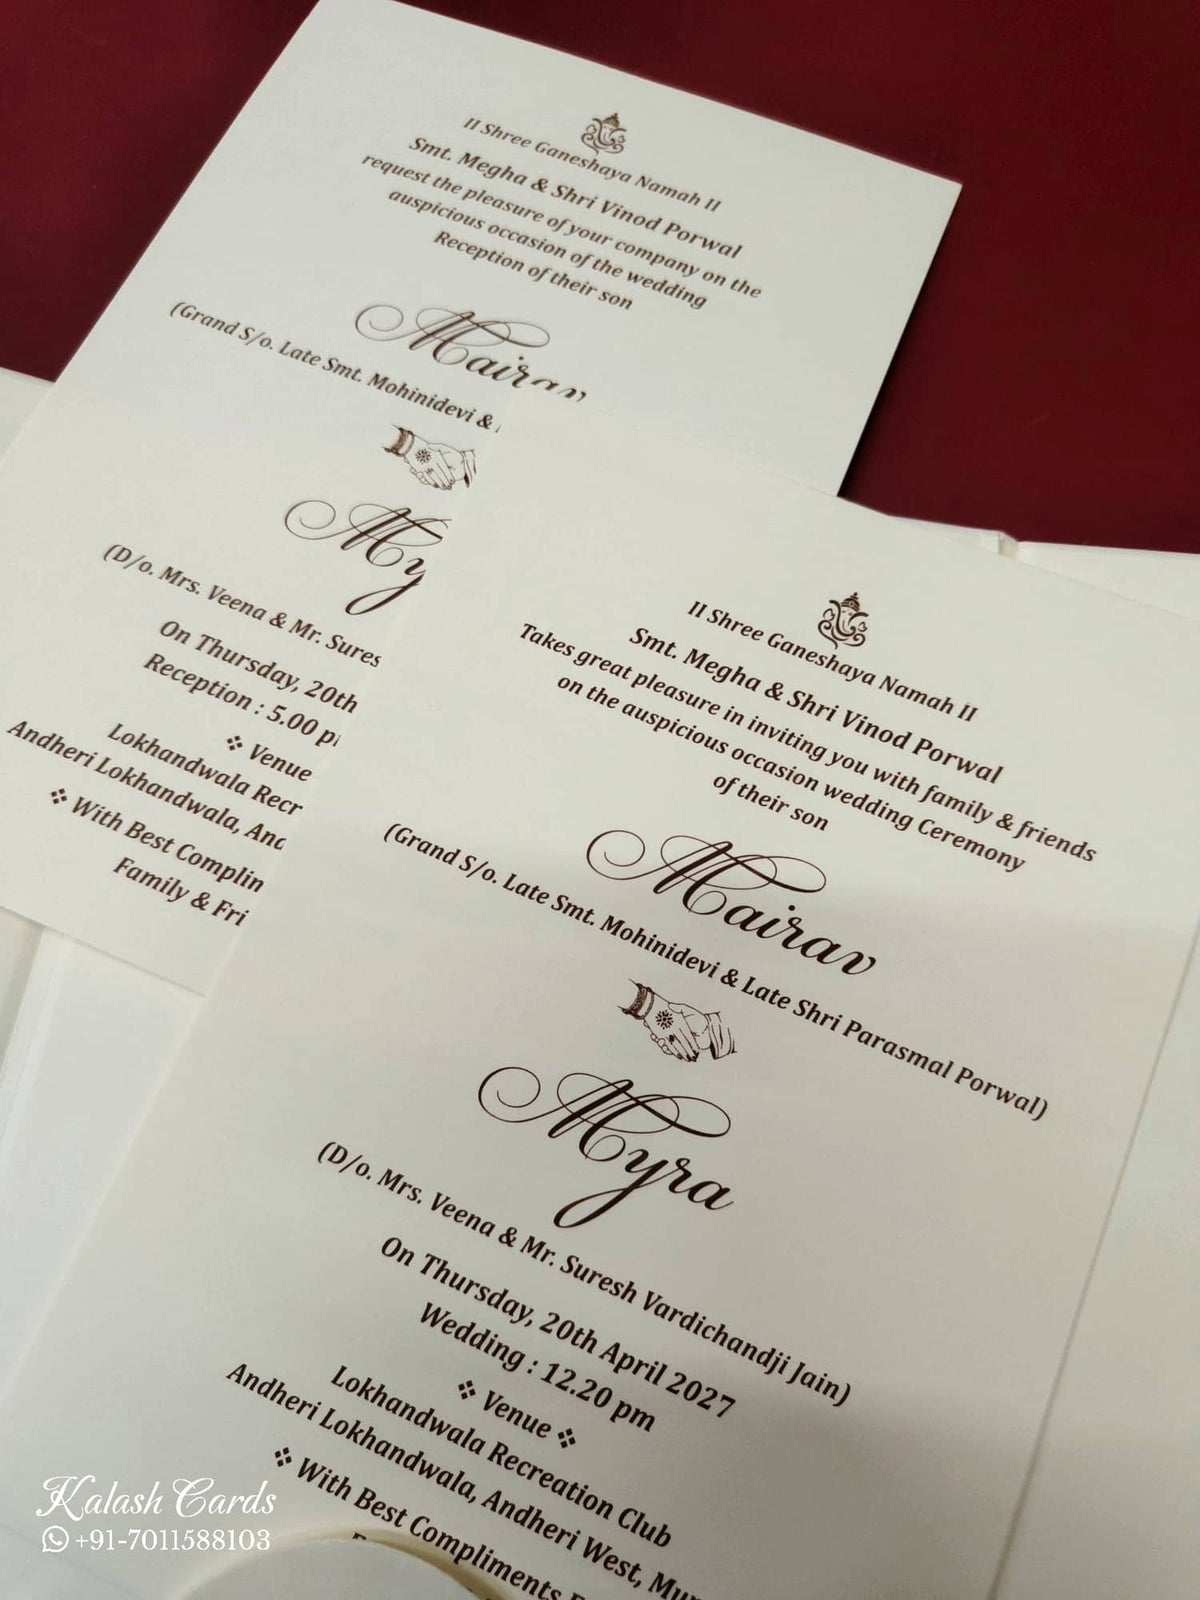 II Shree Ganeshaya Namah II
Smt. Megha & Shri Vinod Porwal
request the pleasure of your company on the
auspicious occasion of the wedding
Reception of their son
Mairav
(Grand S/o. Late Smt. Mohinidevi &
(D/o. Mrs. Veena & Mr. Sures
On Thursday, 20th
Reception : 5.00 p
Venue
Lokhandwala Recr
Andheri Lokhandwala, And
With Best Complin
Family & Fri
II Shree Ganeshaya Namah II
Smt. Megha & Shri Vinod Porwal
Takes great pleasure in inviting you with family & friends
on the auspicious occasion wedding Ceremony
of their son
Mairav
(Grand S/o. Late Smt. Mohinidevi & Late Shri Parasmal Porwal)
Myra
(D/o. Mrs. Veena & Mr. Suresh Vardichandji Jain)
On Thursday, 20th April 2027
Wedding : 12.20 pm
Venue
Lokhandwala Recreation Club
Andheri Lokhandwala, Andheri West, Mu
With Best Compliments
Kalash Cards
+91-7011588103